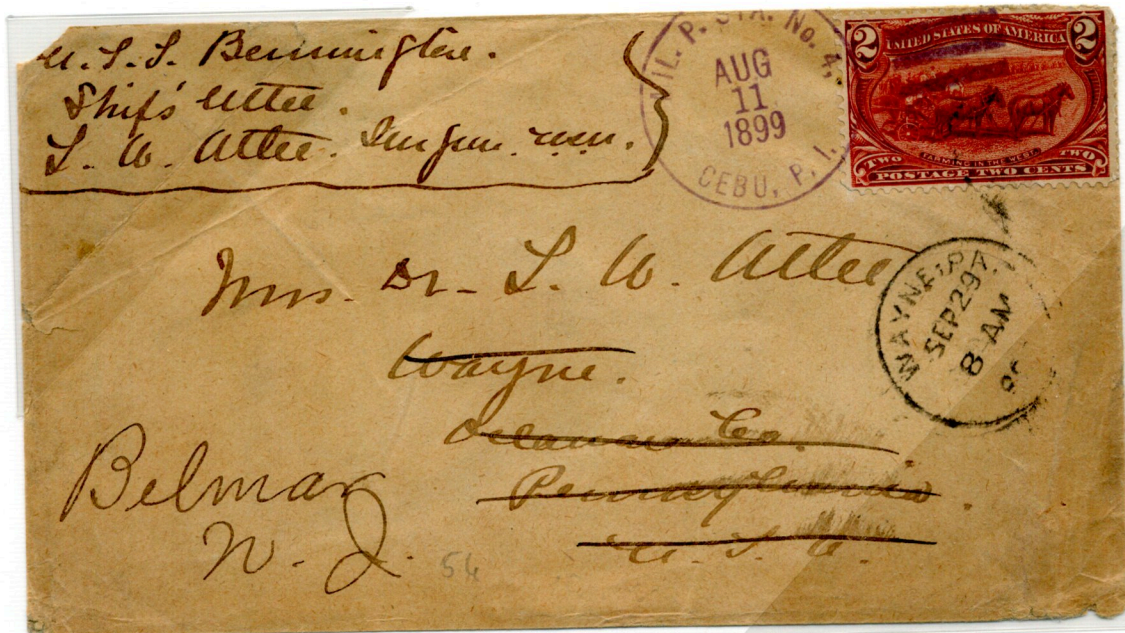 U.S.S. Bennington.
Ship's letter.
L. W. Atlee. Surgeon. U.S.N.
IL. P. STA. No. 4.
AUG
11
1899
CEBU, P. I.
2 UNITED STATES OF AMERICA 2
FARMING IN THE WEST
TWO TWO
POSTAGE TWO CENTS
Mrs. Dr. L. W. Atlee
Wayne.
Delaware Co.
Pennsylvania.
U. S. A.
WAYNE, PA.
SEP 29
8 AM
Belmar
N. J.
54